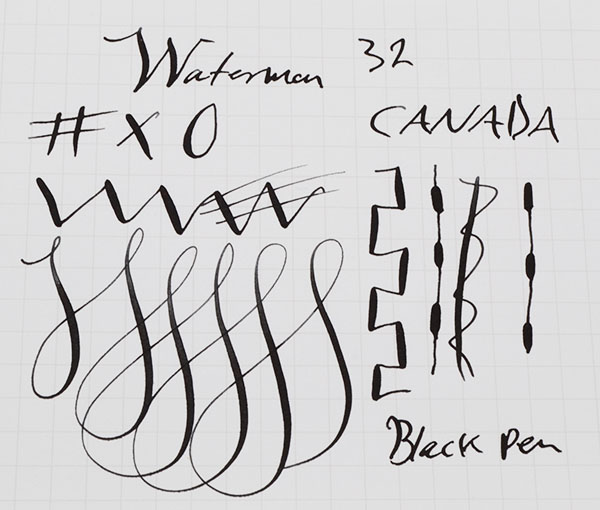 Waterman 32
# X 0 CANADA
Black pen